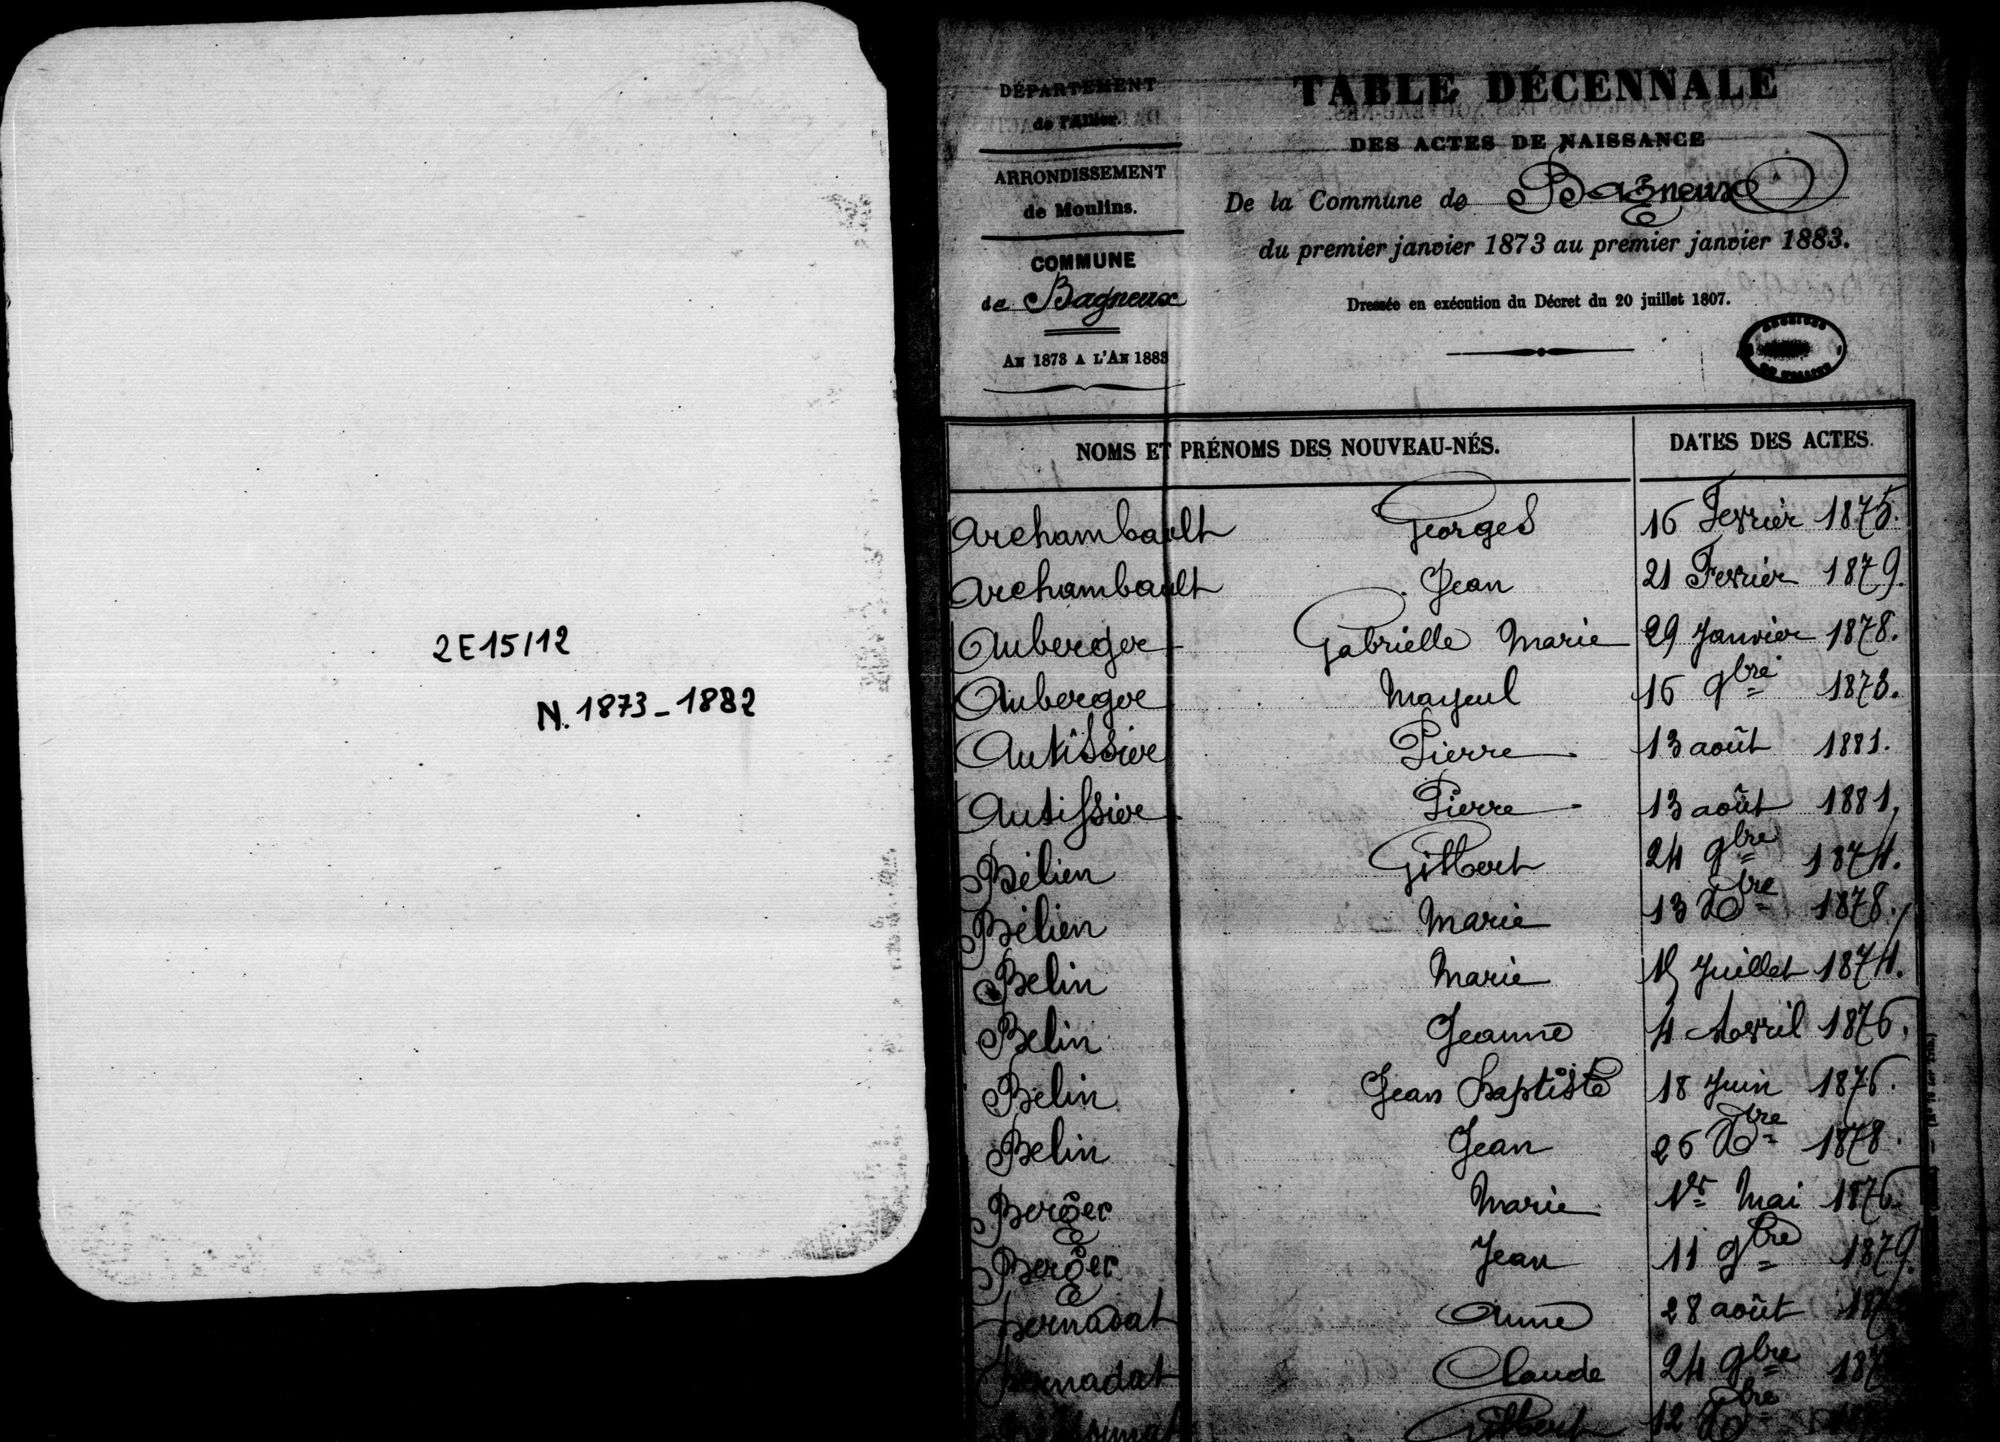 2E15/12
N. 1873-1882
DÉPARTEMENT
de l'Allier.
ARRONDISSEMENT
de Moulins.
COMMUNE
de Bagneux
AN 1873 A L'AN 1883
TABLE DÉCENNALE
DES ACTES DE NAISSANCE
De la Commune de Bagneux
du premier janvier 1873 au premier janvier 1883.
Dressée en exécution du Décret du 20 juillet 1807.
ARCHIVES
NOMS ET PRÉNOMS DES NOUVEAU-NÉS. DATES DES ACTES.
Archambault Georges 16 Fevrier 1875.
Archambault Jean 21 Fevrier 1879.
Auberger Gabrielle Marie 29 Janvier 1878.
Auberger Mayeul 16 9bre 1873.
Autissier Pierre 13 août 1881.
Autissier Pierre 13 août 1881.
Bélien Gilbert 24 9bre 1874.
Bélien Marie 13 Xbre 1878.
Belin Marie Juillet 1874.
Belin Jeanne 4 Avril 1876.
Belin Jean Baptiste 18 Juin 1876.
Belin Jean 26 Xbre 1878.
Berger Marie 1er Mai 1876.
Berger Jean 11 9bre 1879.
Bernadat Anne 28 août
Bernadat Claude 24 9bre
Gilbert 12 Xbre